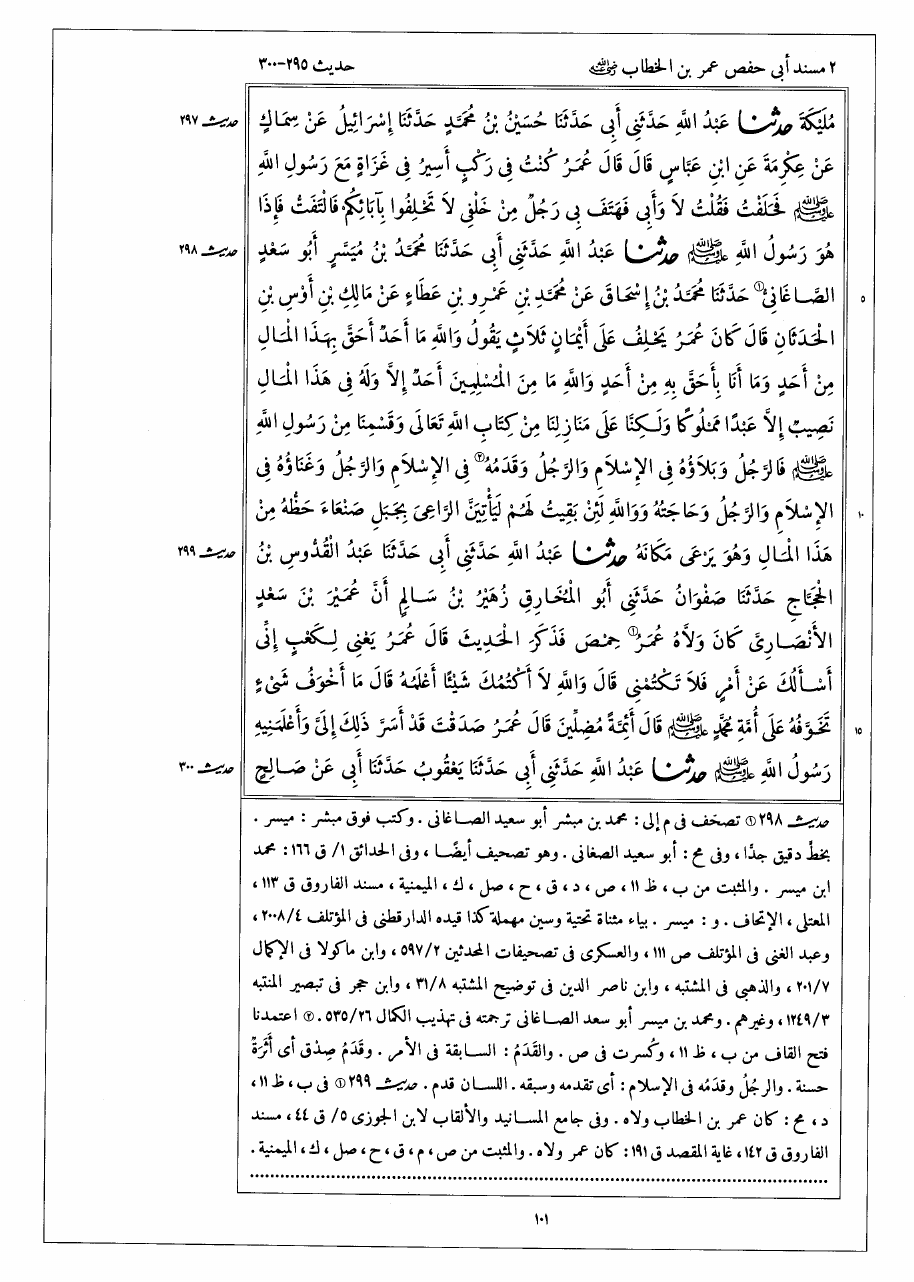 ٢ مسند أبى حفص عمر بن الخطاب رضي الله عنه حديث ٢٩٥-٣٠٠
مُلَيْكَةَ حدثنا عَبْدُ اللَّهِ حَدَّثَنِى أَبِى حَدَّثَنَا حُسَيْنُ بْنُ مُحَمَّدٍ حَدَّثَنَا إِسْرَائِيلُ عَنْ سِمَاكٍ حديث ٢٩٧
عَنْ عِكْرِمَةَ عَنِ ابْنِ عَبَّاسٍ قَالَ قَالَ عُمَرُ كُنْتُ فِى رَكْبٍ أَسِيرُ فِى غَزَاةٍ مَعَ رَسُولِ اللَّهِ
ﷺ فَحَلَفْتُ فَقُلْتُ لاَ وَأَبِى فَهَتَفَ بِى رَجُلٌ مِنْ خَلْفِى لاَ تَحْلِفُوا بِآبَائِكُمْ فَالْتَفَتُّ فَإِذَا
هُوَ رَسُولُ اللَّهِ ﷺ حدثنا عَبْدُ اللَّهِ حَدَّثَنِى أَبِى حَدَّثَنَا مُحَمَّدُ بْنُ مُيَسَّرٍ أَبُو سَعْدٍ حديث ٢٩٨
الصَّاغَانِىُّ① حَدَّثَنَا مُحَمَّدُ بْنُ إِسْحَاقَ عَنْ مُحَمَّدِ بْنِ عَمْرِو بْنِ عَطَاءٍ عَنْ مَالِكِ بْنِ أَوْسِ بْنِ ٥
الْحَدَثَانِ قَالَ كَانَ عُمَرُ يَحْلِفُ عَلَى أَيْمَانٍ ثَلاَثٍ يَقُولُ وَاللَّهِ مَا أَحَدٌ أَحَقَّ بِهَذَا الْمَالِ
مِنْ أَحَدٍ وَمَا أَنَا بِأَحَقَّ بِهِ مِنْ أَحَدٍ وَاللَّهِ مَا مِنَ الْمُسْلِمِينَ أَحَدٌ إِلاَّ وَلَهُ فِى هَذَا الْمَالِ
نَصِيبٌ إِلاَّ عَبْدًا مَمْلُوكًا وَلَكِنَّا عَلَى مَنَازِلِنَا مِنْ كِتَابِ اللَّهِ تَعَالَى وَقَسْمِنَا مِنْ رَسُولِ اللَّهِ
ﷺ فَالرَّجُلُ وَبَلاَؤُهُ فِى الإِسْلاَمِ وَالرَّجُلُ وَقَدَمُهُ② فِى الإِسْلاَمِ وَالرَّجُلُ وَغَنَاؤُهُ فِى
الإِسْلاَمِ وَالرَّجُلُ وَحَاجَتُهُ وَوَاللَّهِ لَئِنْ بَقِيتُ لَهُمْ لَيَأْتِيَنَّ الرَّاعِىَ بِجَبَلِ صَنْعَاءَ حَظُّهُ مِنْ ١٠
هَذَا الْمَالِ وَهُوَ يَرْعَى مَكَانَهُ حدثنا عَبْدُ اللَّهِ حَدَّثَنِى أَبِى حَدَّثَنَا عَبْدُ الْقُدُّوسِ بْنُ حديث ٢٩٩
الْحَجَّاجِ حَدَّثَنَا صَفْوَانُ حَدَّثَنِى أَبُو الْمُخَارِقِ زُهَيْرُ بْنُ سَالِمٍ أَنَّ عُمَيْرَ بْنَ سَعْدٍ
الأَنْصَارِىَّ كَانَ وَلاَّهُ عُمَرُ① حِمْصَ فَذَكَرَ الْحَدِيثَ قَالَ عُمَرُ يَعْنِى لِكَعْبٍ إِنِّى
أَسْأَلُكَ عَنْ أَمْرٍ فَلاَ تَكْتُمْنِى قَالَ وَاللَّهِ لاَ أَكْتُمُكَ شَيْئًا أَعْلَمُهُ قَالَ مَا أَخْوَفُ شَىْءٍ
تَخَوَّفُهُ عَلَى أُمَّةِ مُحَمَّدٍ ﷺ قَالَ أَئِمَّةً مُضِلِّينَ قَالَ عُمَرُ صَدَقْتَ قَدْ أَسَرَّ ذَلِكَ إِلَىَّ وَأَعْلَمَنِيهِ ١٥
رَسُولُ اللَّهِ ﷺ حدثنا عَبْدُ اللَّهِ حَدَّثَنِى أَبِى حَدَّثَنَا يَعْقُوبُ حَدَّثَنَا أَبِى عَنْ صَالِحٍ حديث ٣٠٠
حديث ٢٩٨ ① تصحف فى م إلى : محمد بن مبشر أبو سعيد الصاغانى . وكتب فوق مبشر : ميسر .
بخط دقيق جدًا ، وفى مح : أبو سعيد الصغانى . وهو تصحيف أيضًا ، وفى الحدائق ١/ ق ١٦٦ : محمد
ابن ميسر . والمثبت من ب ، ظ ١١ ، ص ، د ، ق ، ح ، صل ، ك ، الميمنية ، مسند الفاروق ق ١١٣ ،
المعتلى ، الإتحاف . و : ميسر . بياء مثناة تحتية وسين مهملة كذا قيده الدارقطنى فى المؤتلف ٢٠٠٨/٤ ،
وعبد الغنى فى المؤتلف ص ١١١ ، والعسكرى فى تصحيفات المحدثين ٥٩٧/٢ ، وابن ماكولا فى الإكمال
٢٠١/٧ ، والذهبى فى المشتبه ، وابن ناصر الدين فى توضيح المشتبه ٣١/٨ ، وابن حجر فى تبصير المنتبه
١٢٤٩/٣ ، وغيرهم . ومحمد بن ميسر أبو سعد الصاغانى ترجمته فى تهذيب الكمال ٥٣٥/٢٦ . ② اعتمدنا
فتح القاف من ب ، ظ ١١ ، وكُسرت فى ص . والقَدَمُ : السابقة فى الأمر . وقَدَمُ صِدْق أى أَثَرَةٌ
حسنة . والرجُلُ وقدَمُه فى الإسلام : أى تقدمه وسبقه . اللسان قدم . حديث ٢٩٩ ① فى ب ، ظ ١١ ،
د ، مح : كان عمر بن الخطاب ولاه . وفى جامع المسانيد والألقاب لابن الجوزى ٥/ ق ٤٤ ، مسند
الفاروق ق ١٤٢ ، غاية المقصد ق ١٩١ : كان عمر ولاه . والمثبت من ص ، م ، ق ، ح ، صل ، ك ، الميمنية .
١٠١